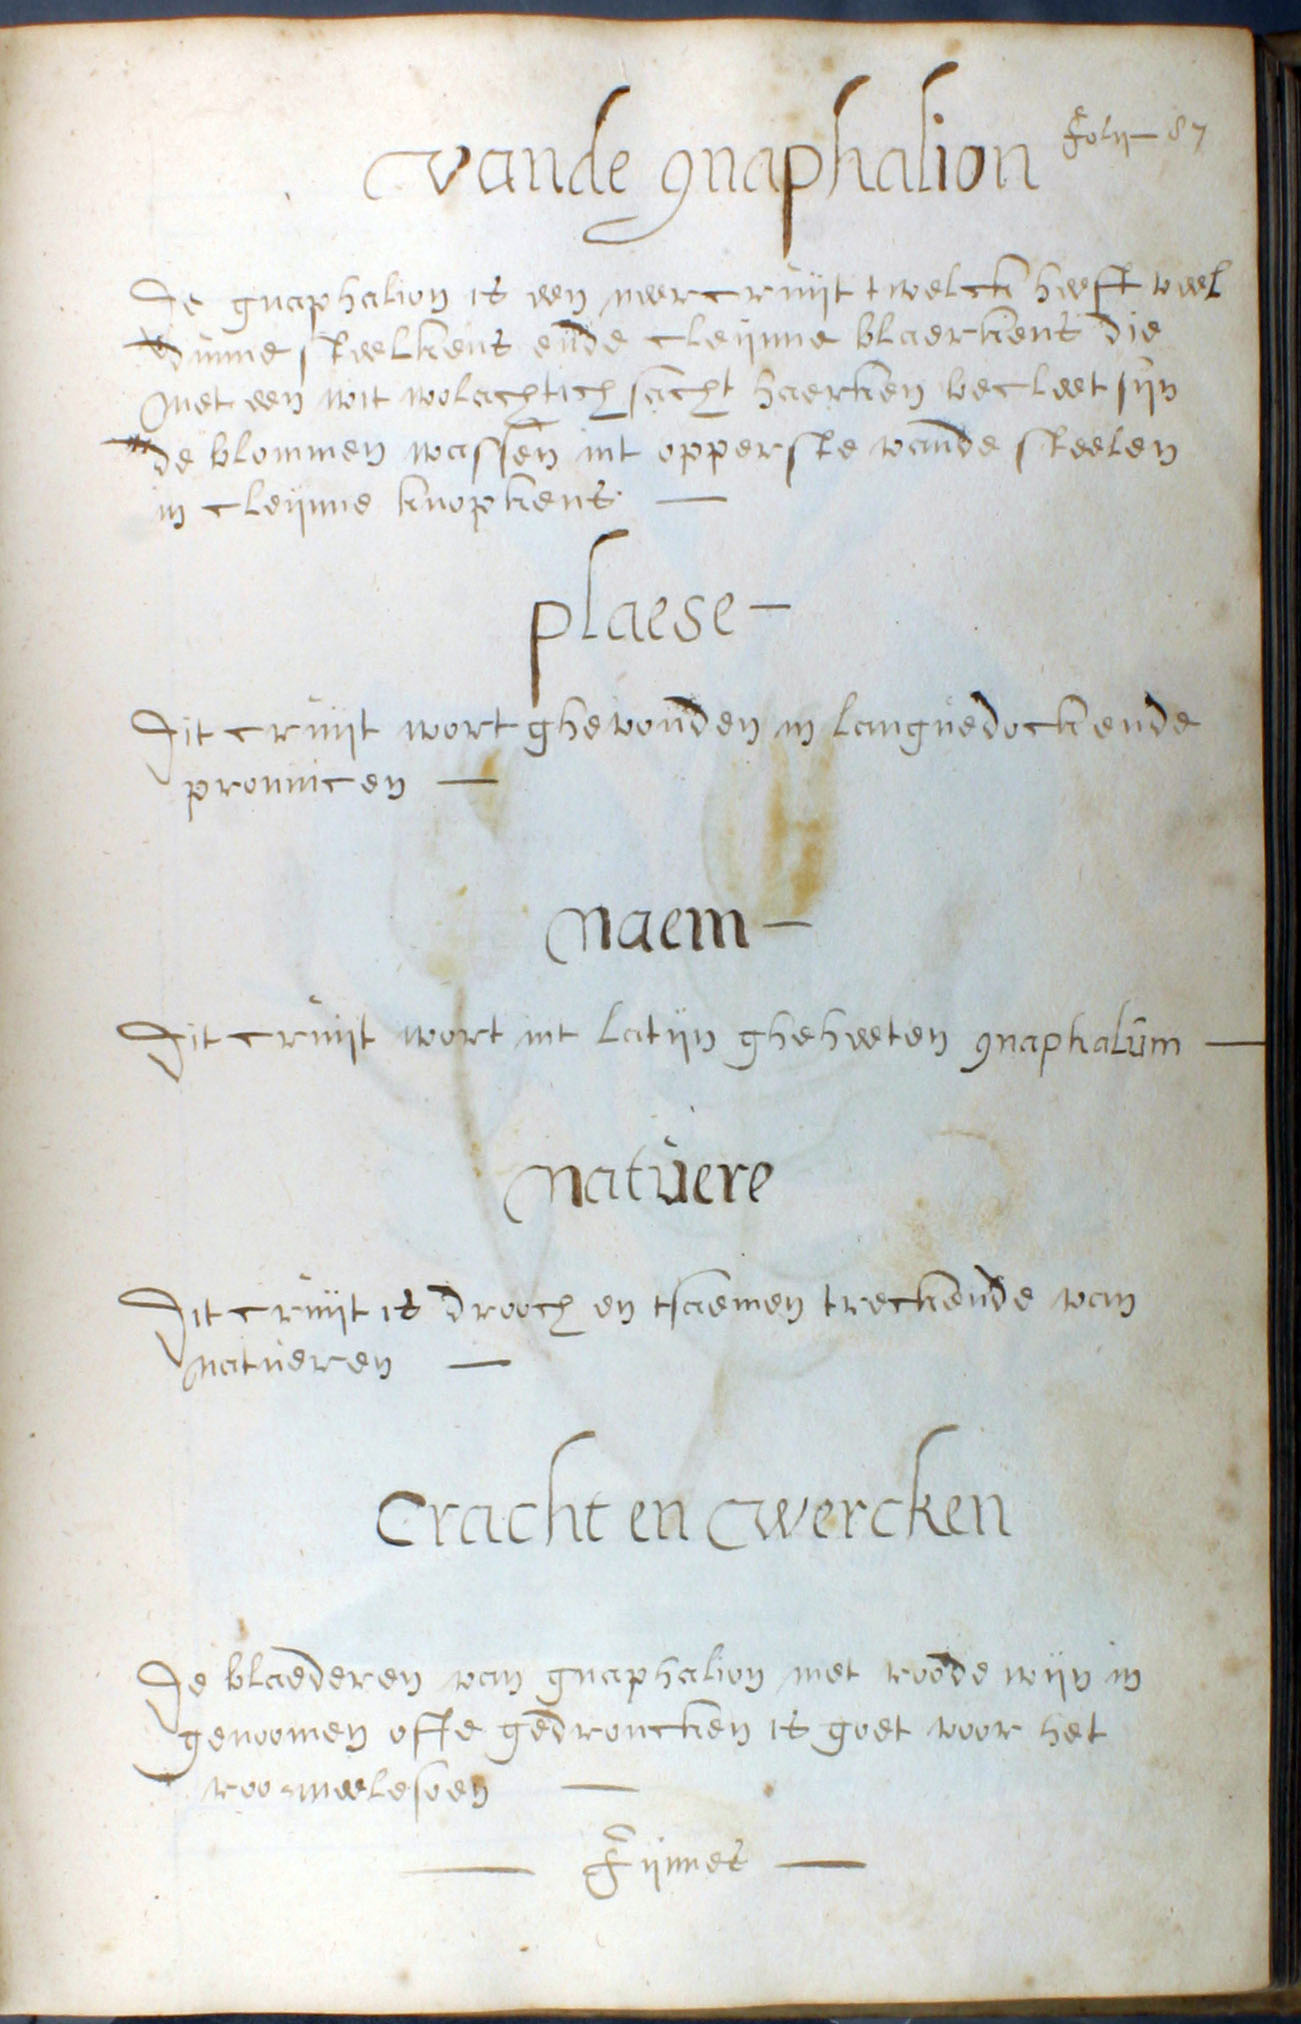 vande gnaphalion
Folij – 87
De gnaphalion is een neer cruijt twelck heeft veel
dunne steelkens ende cleijnne blaerkens die
Met een wit wolachtich sacht haerken becleet sijn
de blommen wassen int opperste vande steelen
in cleijnne knopkens —
plaese –
Dit cruijt wort ghevonden in languedock ende
provincen —
Naem –
Dit cruijt wort int latijn gheheeten gnaphalum —
Natuere
Dit cruijt is drooch en tsaemen treckende van
natueren —
Cracht en wercken
De blaederen van gnaphalion met roode wijn in
genoomen ofte gedroncken is goet voor het
roo meelesoen —
— Fijnnes —